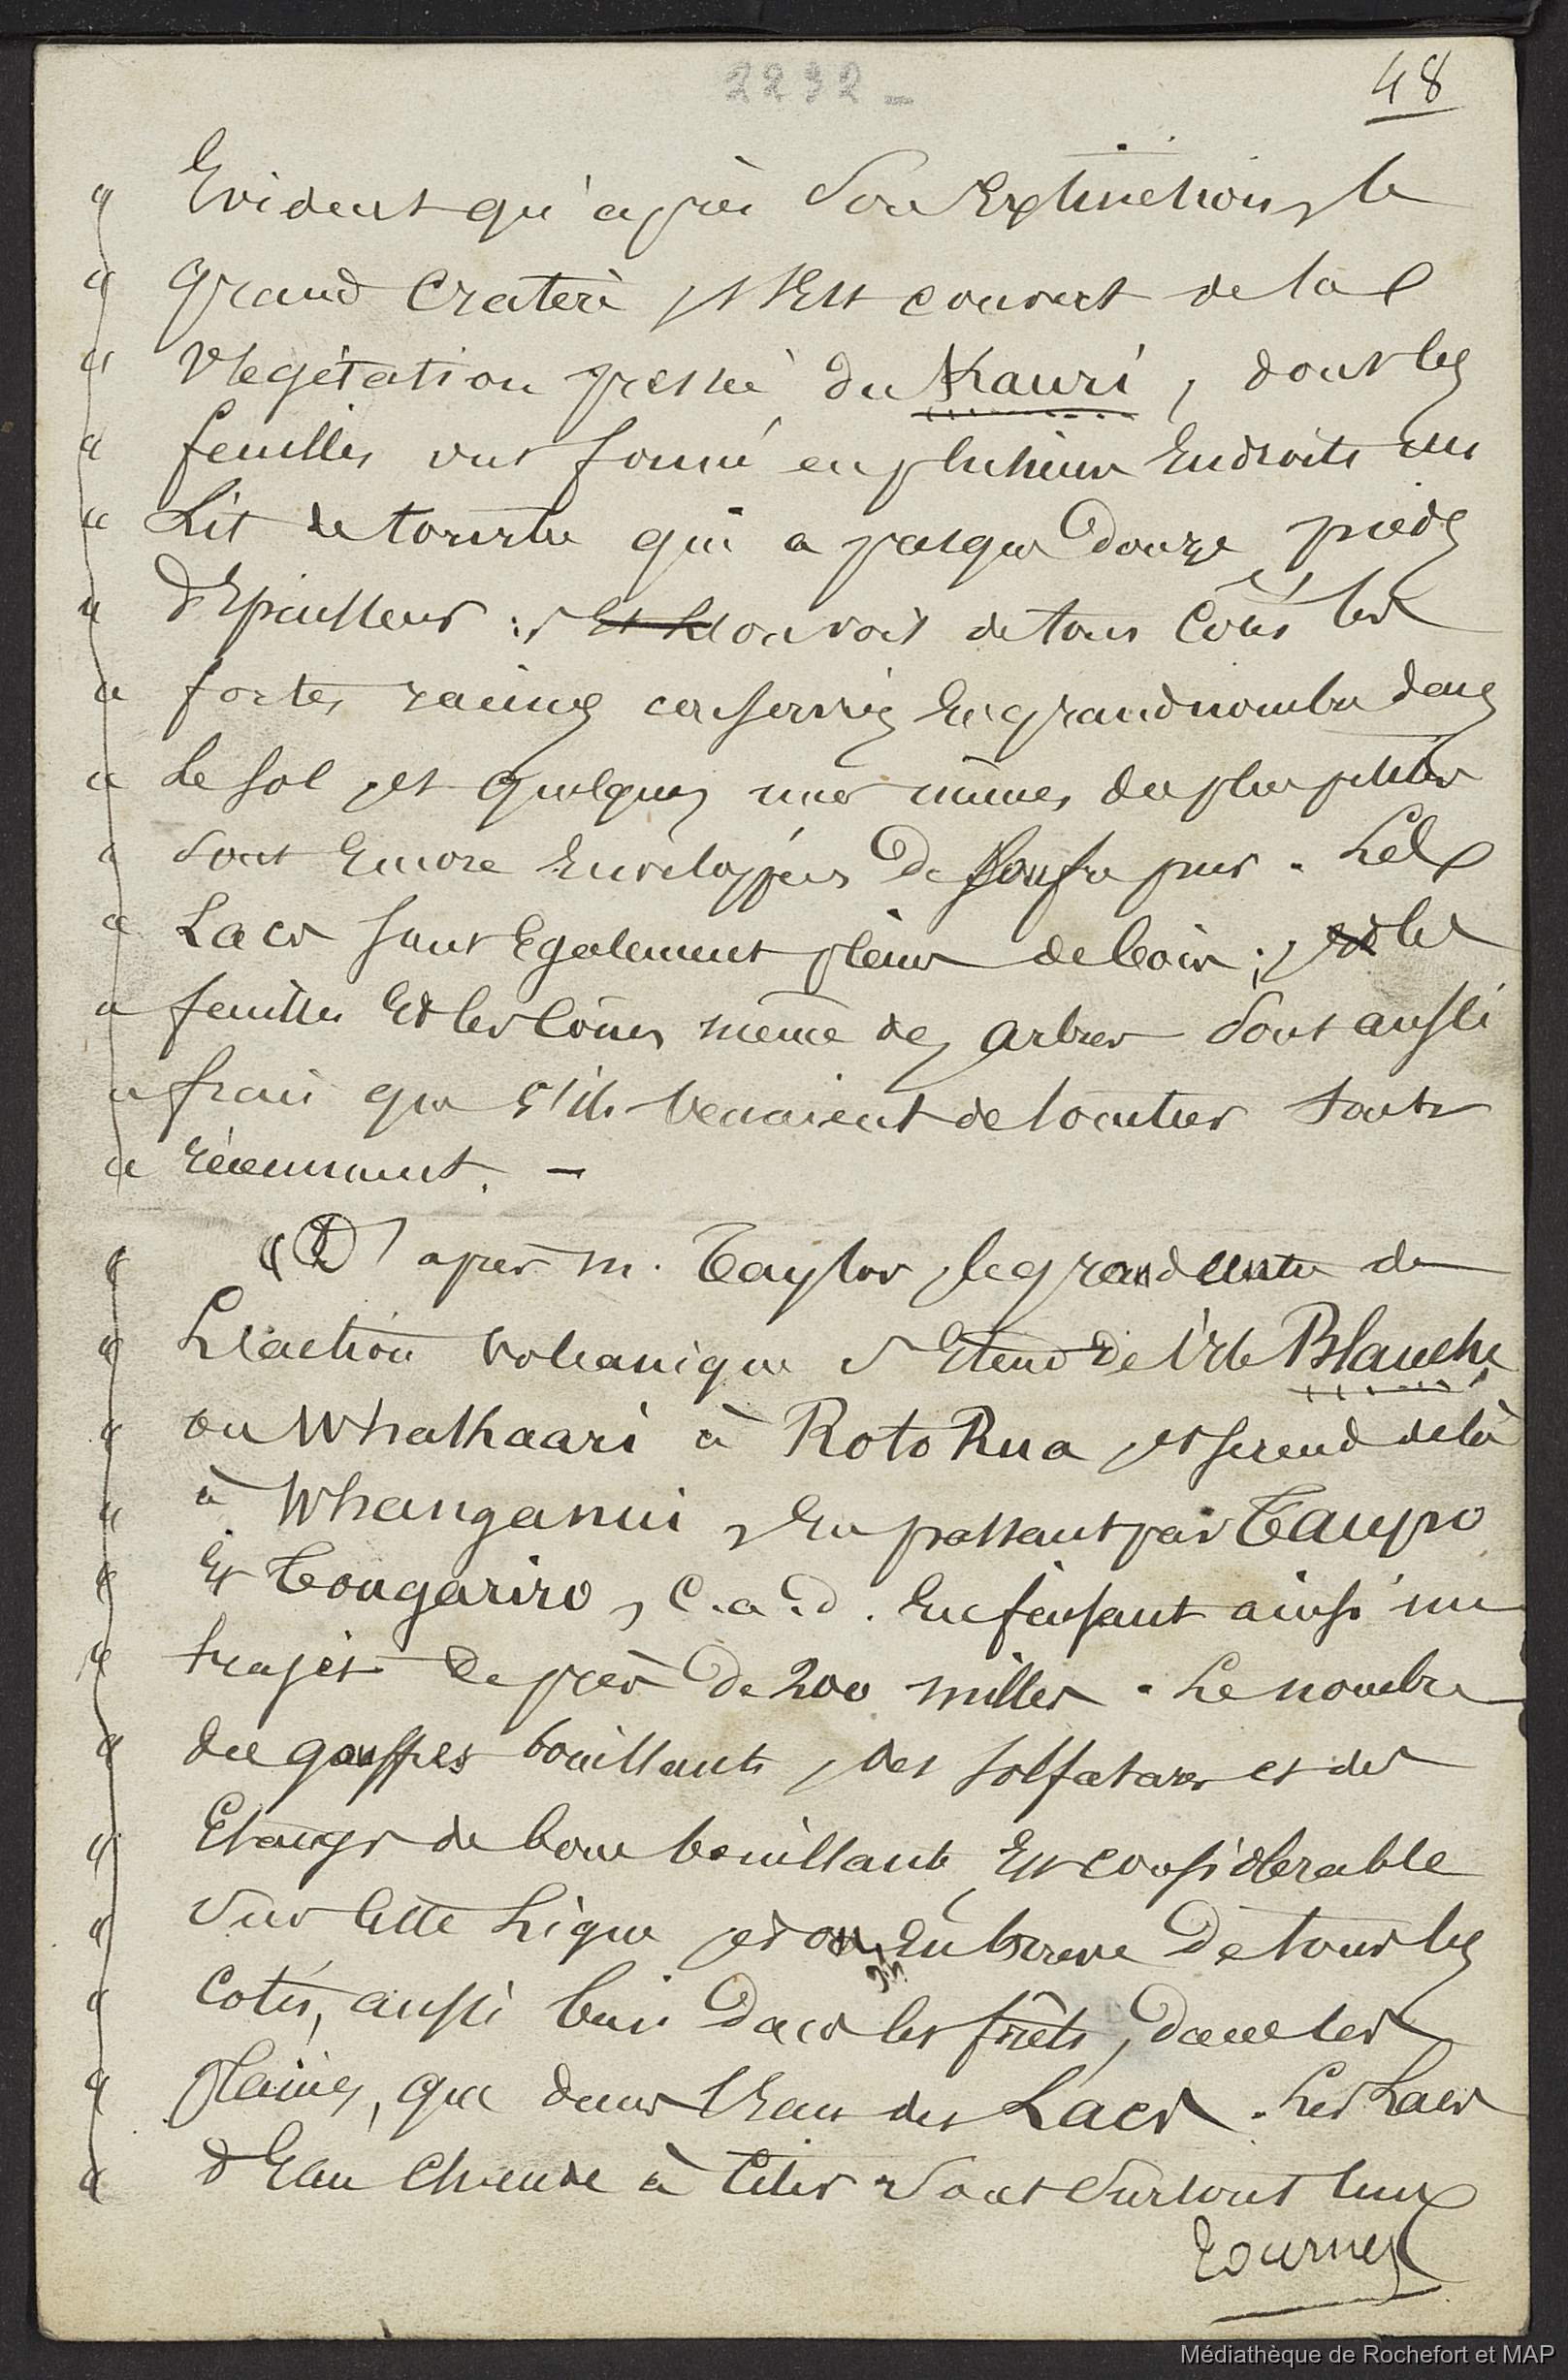 2292 -
48
" Evident qu'après son Extinction, le
" grand cratère, s'Est couvert de la
" Végétation pressée du Kauri, dont les
" feuilles ont formé en plusieurs Endroits un
" Lit de tourbe qui a presque douze pieds
" d'Epaisseur : on voit de tous Côtés les
" fortes racines conservées En grand nombre dans
" Le sol, et quelques unes mêmes des plus petites
" sont Encore Enveloppées De soufre pur. Les
" Lacs sont Egalement pleins de bois ; les
" feuilles Et les cônes même des arbres sont aussi
" frais que s'ils venaient de tomber tout
" récemment. -
" " D'après M. Taylor, le grand centre de
" L'action volcanique s'Etend de l'île Blanche
" ou Whakaari à Roto Rua, et se rend de là
" à Whanganui, En passant par Taupo
" Et Tongariro, C.a.d. En faisant ainsi un
" trajet De près De 200 milles. Le nombre
" des gouffres bouillants, des solfatares et des
" Etangs de boue bouillante Est considérable
" sur cette Ligne, et on En trouve De tous les
" côtés, aussi bien Dans les forêts, dans les
" plaines, que dans l'Eau des Lacs. Les Lacs
" d'Eau Chaude à citer sont surtout ceux
tournez
Médiathèque de Rochefort et MAP